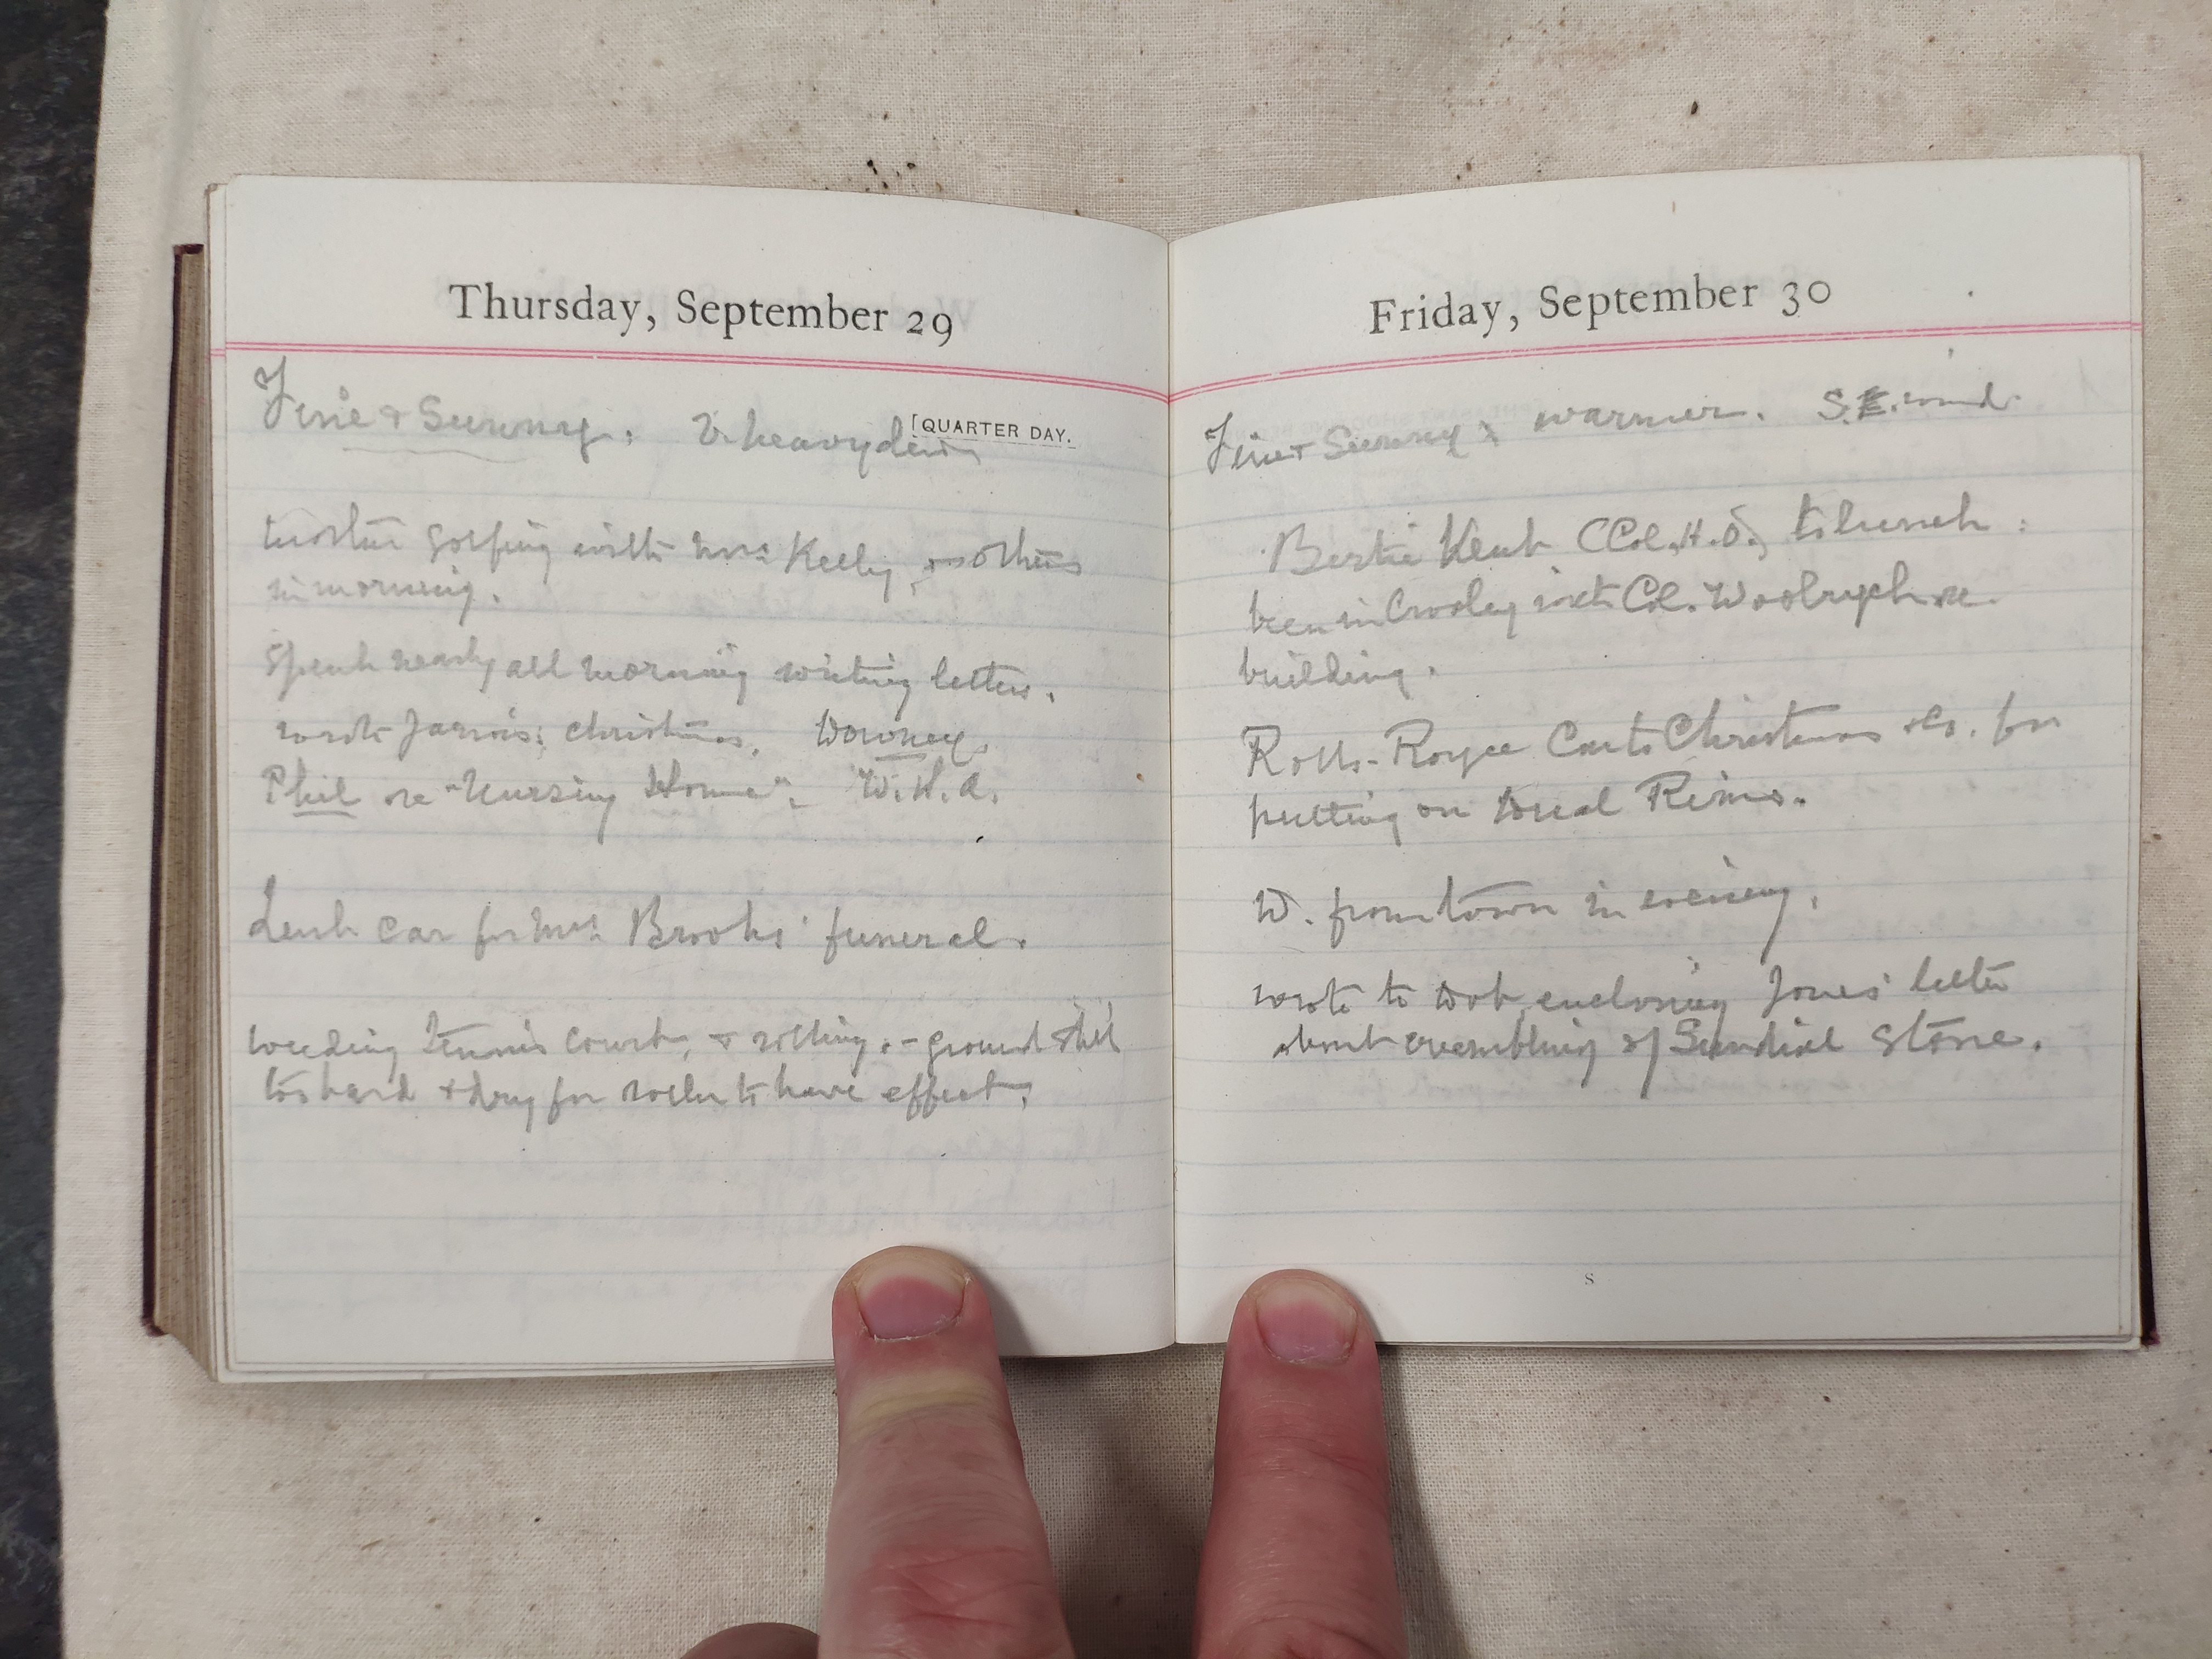 Thursday, September 29
[QUARTER DAY.
Fine & Sunny. V. heavy dew
golfing with Mrs Kelly, & others
in morning.
Spent nearly all morning writing letters.
wrote Jarvis; Christmas, Downey,
Phil re "Nursing Home". W.H.A.
Lent car for Mrs Brooks' funeral.
weeding Tennis Court, & rolling. - ground still
too hard & dry for roller to have effect.
Friday, September 30
Fine & Sunny; warmer. S.E. wind.
Bertie Kent (Col. H.O.) to lunch:
been in with Col. Woolrych re.
building.
Rolls-Royce Car to Christmas & Co. for
putting on Dual Rims.
W. from town in evening.
wrote to Dob enclosing Jones' letter
about crumbling of Sundial Stone.
S